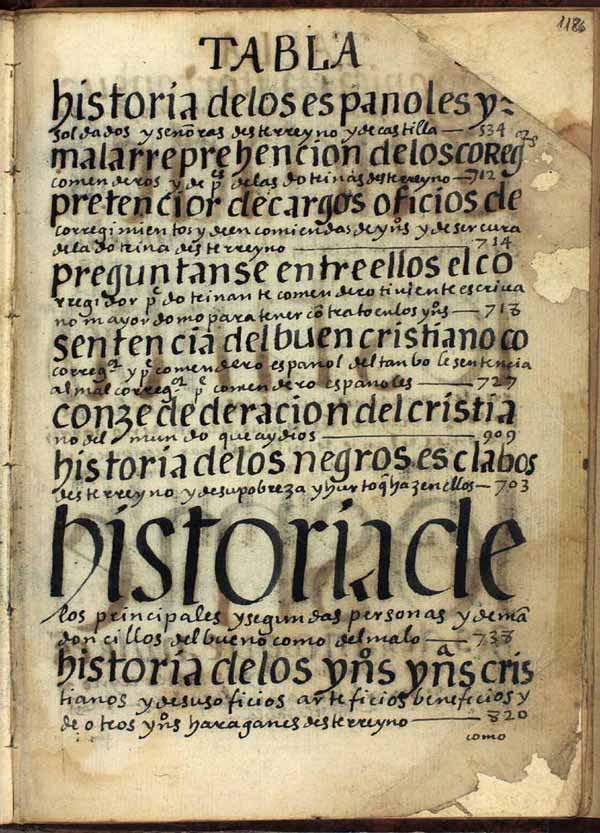 1186
TABLA
historia delos espanoles y
soldados y señoras desterreyno y de castilla — 534
mala rreprehencion delos coReg
comenderos y de p.es delas dotrinas desterreyno — 712
pretencior de cargos oficios de
corregimientos y de encomiendas de yn̊s y de ser cura
de la dotrina desterreyno — 714
preguntanse entre ellos el co
rregidor p.e dotrinante comendero tiniente escriva
no mayordomo para tener cōtrato cu los yn̊s — 718
sentencia del buen cristiano co
correg.or y p.e comendero español del tanbo le sentencia
al mal correg.or p.e comendero españoles — 727
conzedederacion del cristia
no del mundo que ay dios — 909
historia delos negros esclabos
desterreyno y de su pobreza y hurto q̄ hazen ellos — 703
historia de
los principales y segundas personas y de mā
doncillos del bueno como del malo — 738
historia delos yn̊s yn̊as cris
tianos y de sus oficios arteficios beneficios y
de otros yn̊s haraganes desterreyno — 820
como